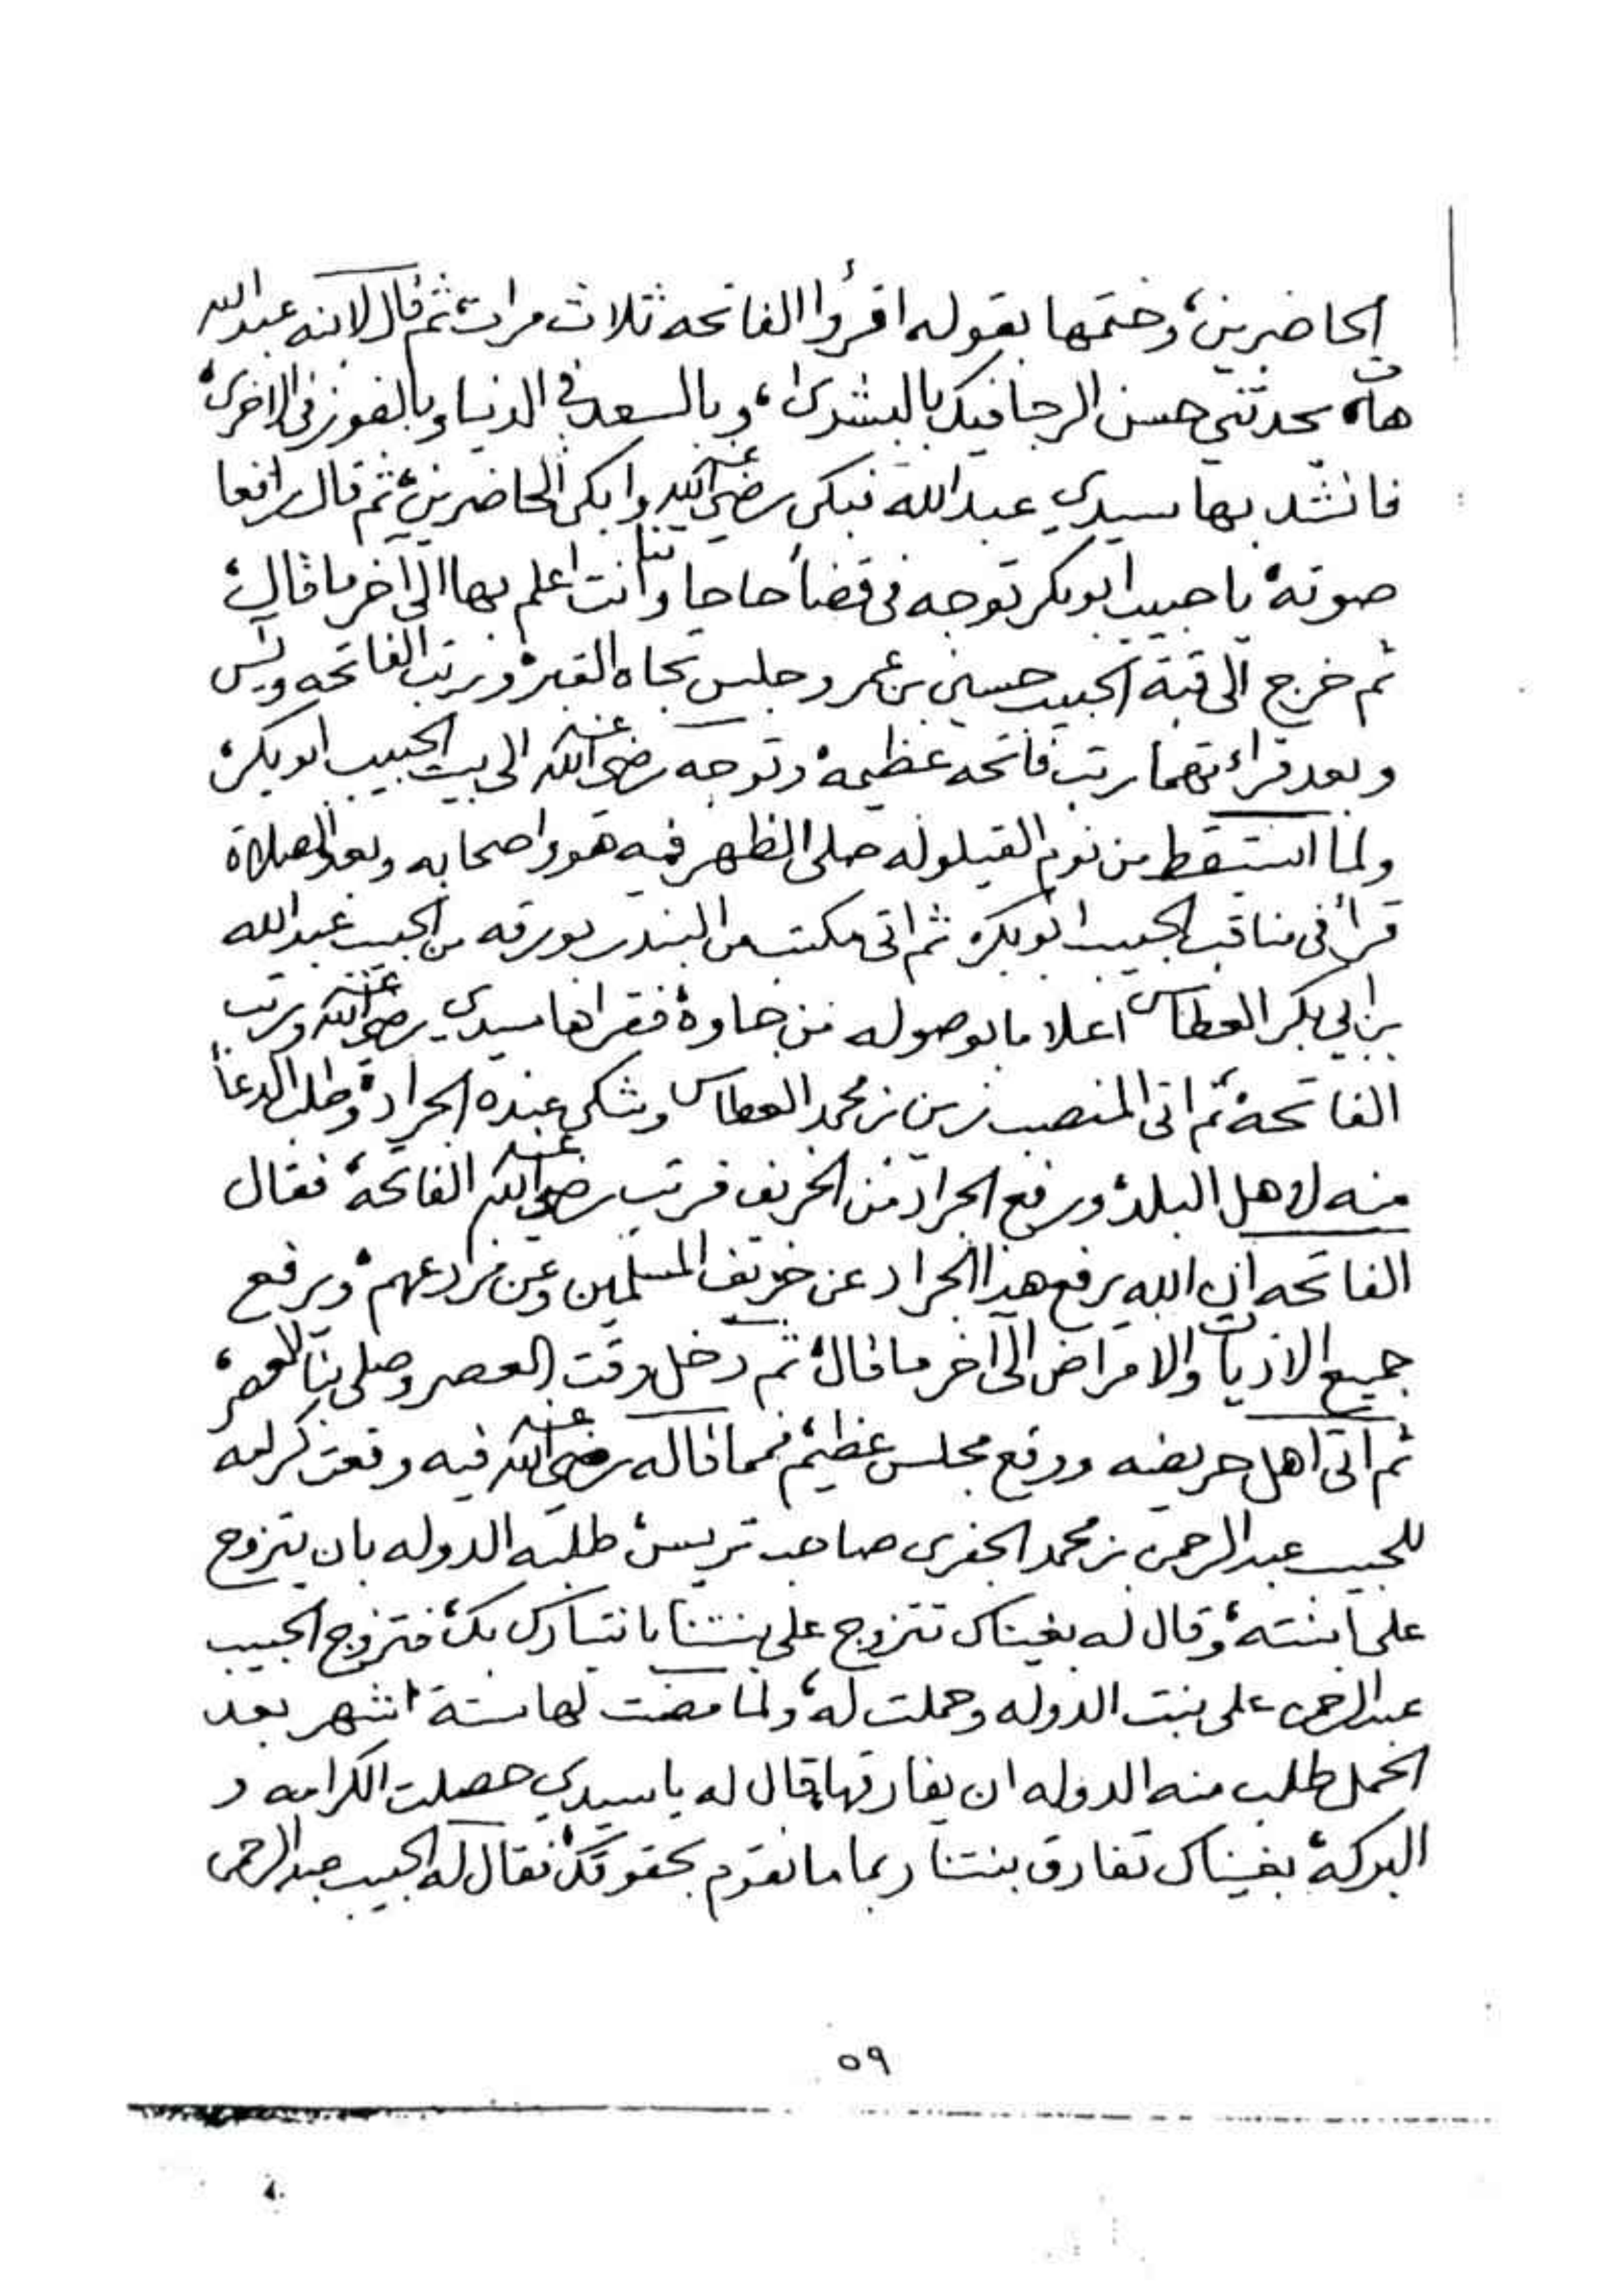 الحاضرين، وختمها بقوله اقرأوا الفاتحه ثلاث مرات، ثم قال لابنه عبدالله
هات يحدثني حسن الرجا فيك بالبشرى، وبالسعد في الدنيا وبالفوز في الاخرى،
فانشد بها سيدي عبدالله فبكى رضي الله عنه وابكى الحاضرين، ثم قال رافعا
صوته يا حبيب ابوبكر توجه في قضأ حاجاتنا وانت اعلم بها الى آخر ما قال،
ثم خرج الى قبة الحبيب حسين بن عمر وجلس تجاه القبر، ورتب الفاتحه ويس
وبعد قراءتهما رتب فاتحه عظيمه، وتوجه رضي الله عنه الى بيت الحبيب ابوبكر،
ولما استيقظ من نوم القيلوله صلى الظهر فيه هو واصحابه وبعد الصلاة
قرأ في مناقب الحبيب ابوبكر، ثم اتى مكتب من البندر بورقه من الحبيب عبدالله
بن ابي بكر العطاس اعلاما بوصوله من جاوة، فقراها سيدي رضي الله عنه ورتب
الفاتحة، ثم اتى المنصب زين بن محمد العطاس وشكى عنده الجراد، وطلب الدعأ
منه لاهل البلد، ورفع الجراد من الخريف فرتب رضي الله عنه الفاتحة، فقال
الفاتحه ان الله يرفع هذا الجراد عن خريف المسلمين وعن مزارعهم، ويرفع
جميع الاذيات والامراض الى آخر ما قال، ثم دخل وقت العصر وصلى بنا العصر،
ثم اتى اهل حريضه ووقع مجلس عظيم، فمما قاله رضي الله عنه فيه وقعت كرامه
للحبيب عبدالرحمن بن محمد الجفري صاحب تريس، طلبه الدوله بان يتزوج
على ابنته، وقال له بغيناك تتزوج على بنتنا بانتبارك بك، فتزوج الحبيب
عبدالرحمن على بنت الدوله وحملت له، ولما مضت لها ستة اشهر بعد
الحمل طلب منه الدوله ان يفارقها، قال له يا سيدي حصلت الكرامه و
البركة، بغيناك تفارق بنتنا ربما ما نقوم بحقوقك، فقال له الحبيب عبدالرحمن
٥٩